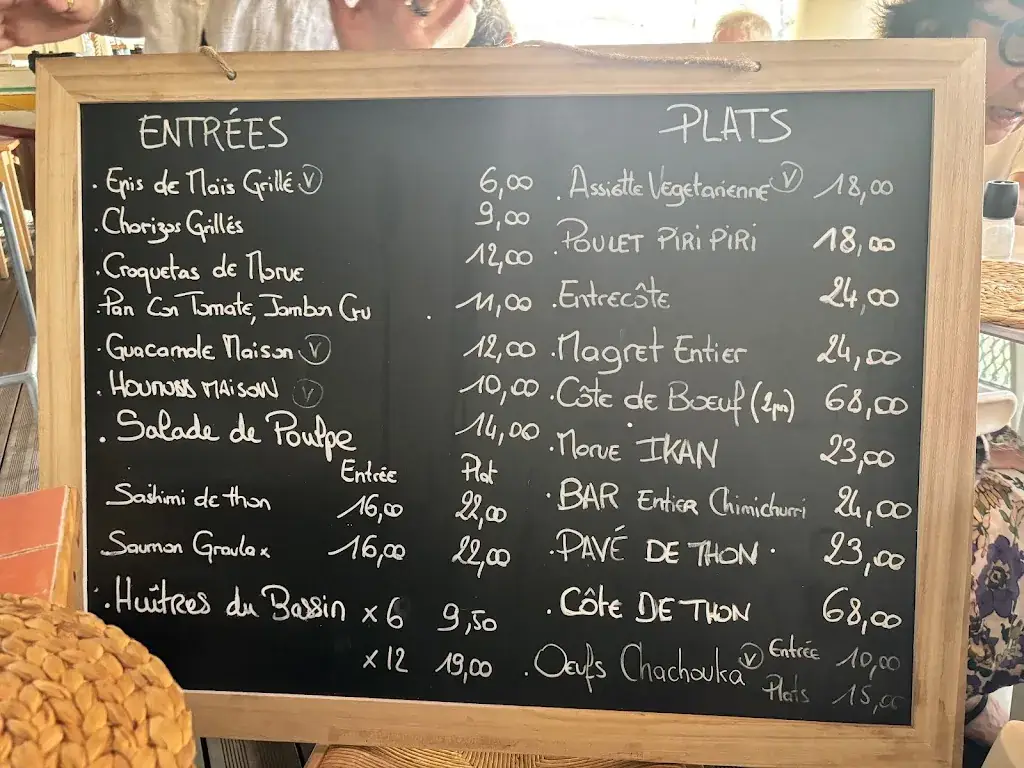 ENTRÉES
. Epis de Maïs Grillé V 6,00
. Chorizos Grillés 9,00
. Croquetas de Morue 12,00
. Pan Con Tomate, Jambon Cru . 11,00
. Guacamole Maison V 12,00
. HOUMOUSS MAISON V 10,00
. Salade de Poulpe 14,00
Entrée Plat
Sashimi de thon 16,00 22,00
Saumon Gravlax 16,00 22,00
. Huîtres du Bassin x 6 9,50
x 12 19,00
PLATS
. Assiette Vegetarienne V 18,00
. POULET PIRI PIRI 18,00
. Entrecôte 24,00
. Magret Entier 24,00
. Côte de Boeuf (2pers) 68,00
. Morue IKAN 23,00
. BAR Entier Chimichurri 24,00
. PAVÉ DE THON . 23,00
. Côte DE THON 68,00
. Oeufs Chachouka V Entrée 10,00
Plats 15,00